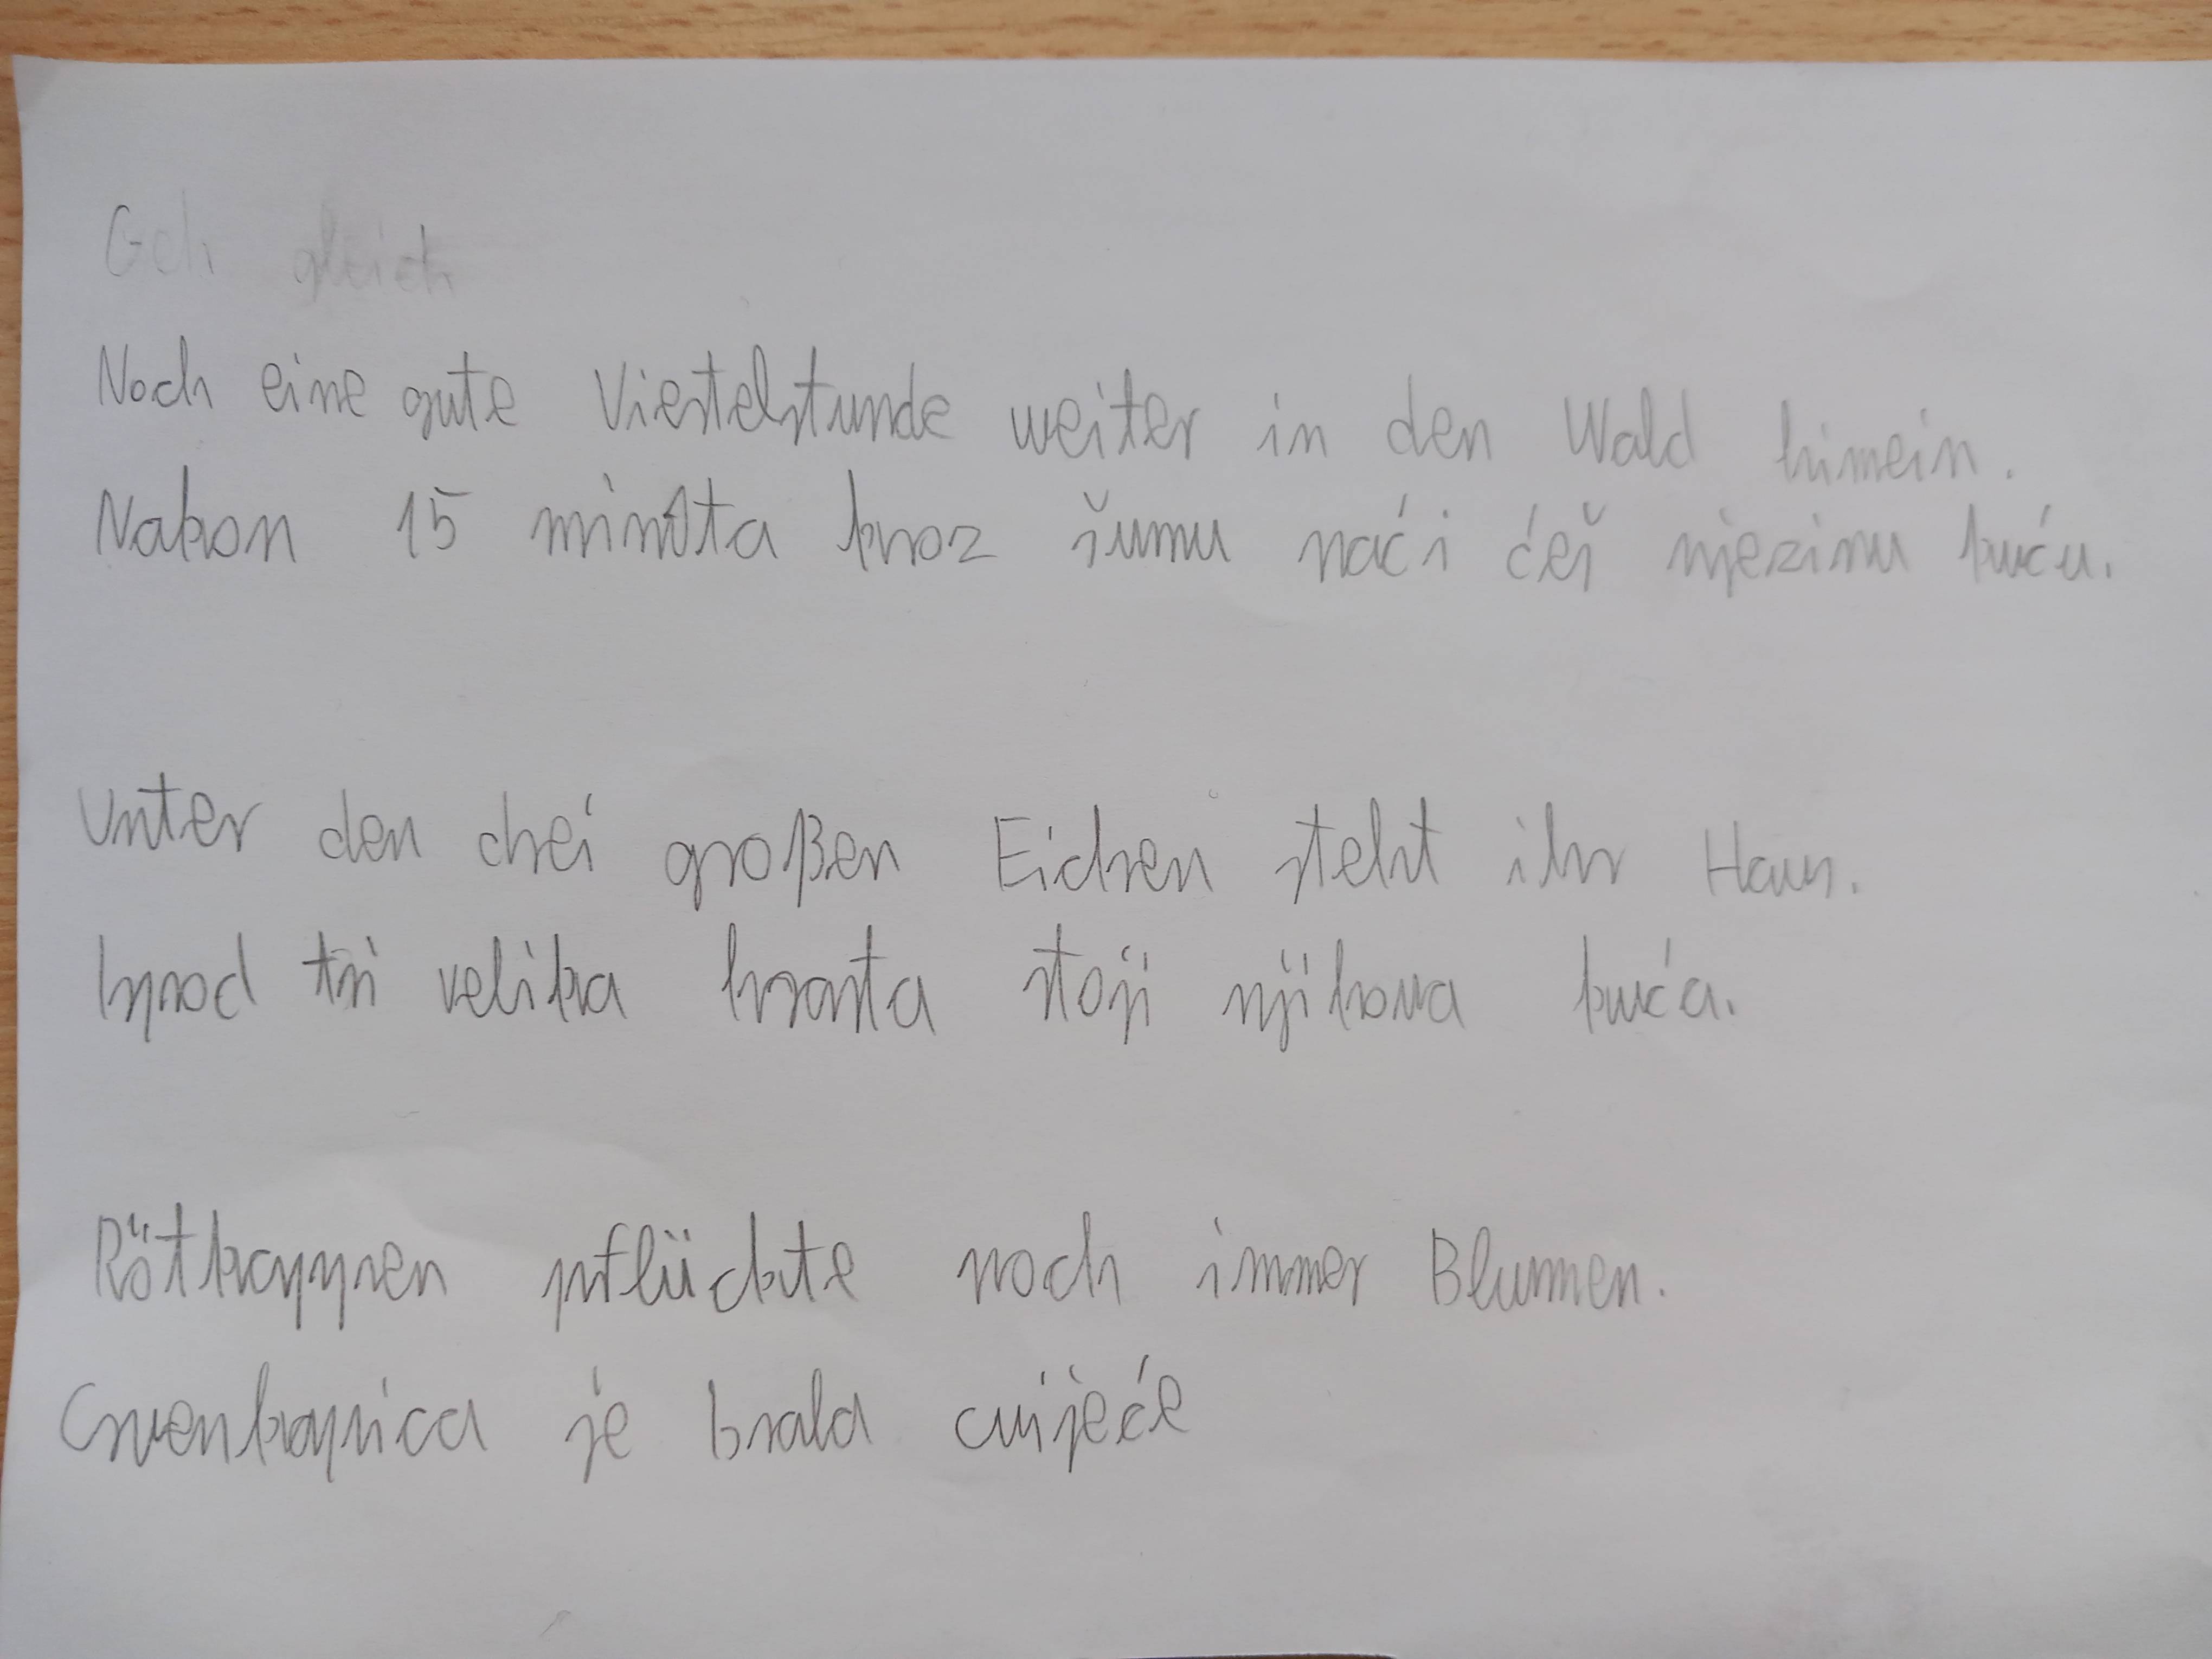 Geh gleich
Noch eine gute Viertelstunde weiter in den Wald hinein.
Nakon 15 minuta kroz šumu naći ćeš njezinu kuću.
Unter den drei großen Eichen steht ihr Haus.
Ispod tri velika hrasta stoji njihova kuća.
Rötkappren pflückte noch immer Blumen.
Crvenkapica je brala cvijeće